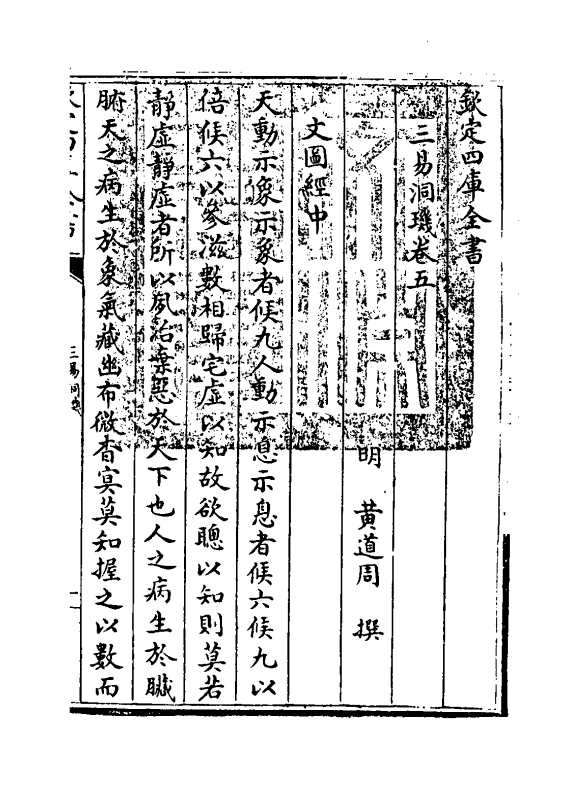 欽定四庫全書
三易洞璣卷五
明　黃道周　撰
文圖經中
天動示象示象者候九人動示息示息者候六候九以
倍候六以參滋數相歸宅虛以知故欲聰以知則莫若
靜虛靜虛者所以夙治棄惡於天下也人之病生於臟
腑天之病生於象氣藏幽布微杳冥莫知握之以數而
三易洞璣